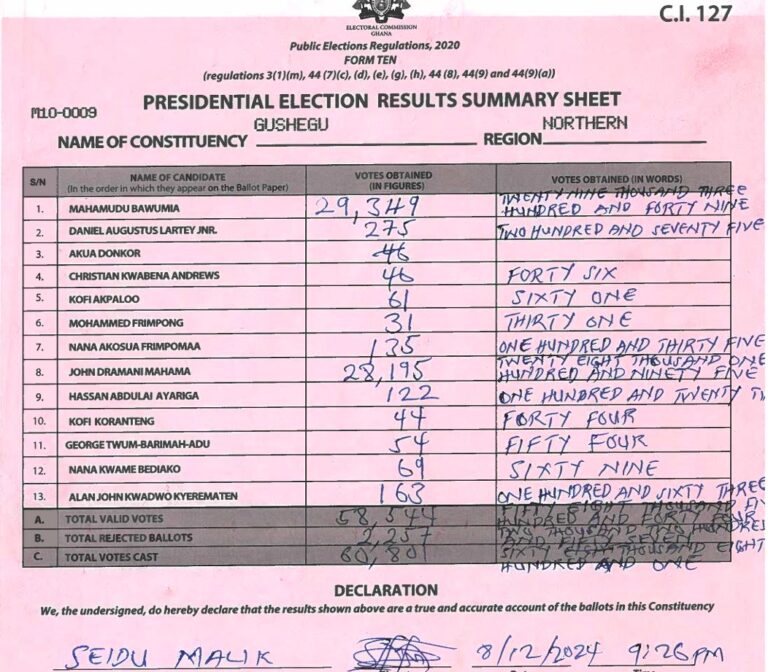 ELECTORAL COMMISSION
GHANA
C.I. 127
Public Elections Regulations, 2020
FORM TEN
(regulations 3(1)(m), 44 (7)(c), (d), (e), (g), (h), 44 (8), 44(9) and 44(9)(a))
M10-0009
PRESIDENTIAL ELECTION RESULTS SUMMARY SHEET
NAME OF CONSTITUENCY GUSHEGU REGION NORTHERN
S/N NAME OF CANDIDATE (In the order in which they appear on the Ballot Paper) VOTES OBTAINED (IN FIGURES) VOTES OBTAINED (IN WORDS)
1. MAHAMUDU BAWUMIA 29,349 TWENTY NINE THOUSAND THREE HUNDRED AND FORTY NINE
2. DANIEL AUGUSTUS LARTEY JNR. 275 TWO HUNDRED AND SEVENTY FIVE
3. AKUA DONKOR 46
4. CHRISTIAN KWABENA ANDREWS 46 FORTY SIX
5. KOFI AKPALOO 61 SIXTY ONE
6. MOHAMMED FRIMPONG 31 THIRTY ONE
7. NANA AKOSUA FRIMPOMAA 135 ONE HUNDRED AND THIRTY FIVE
8. JOHN DRAMANI MAHAMA 28,195 TWENTY EIGHT THOUSAND ONE HUNDRED AND NINETY FIVE
9. HASSAN ABDULAI AYARIGA 122 ONE HUNDRED AND TWENTY T
10. KOFI KORANTENG 44 FORTY FOUR
11. GEORGE TWUM-BARIMAH-ADU 54 FIFTY FOUR
12. NANA KWAME BEDIAKO 69 SIXTY NINE
13. ALAN JOHN KWADWO KYEREMATEN 163 ONE HUNDRED AND SIXTY THREE
A. TOTAL VALID VOTES 58,544 FIFTY EIGHT THOUSAND FI HUNDRED AND FORTY FOUR
B. TOTAL REJECTED BALLOTS 2,257 TWO THOUSAND TWO HUNDRED AND FIFTY SEVEN
C. TOTAL VOTES CAST 60,801 SIXTY EIGHT THOUSAND EIGHT HUNDRED AND ONE
DECLARATION
We, the undersigned, do hereby declare that the results shown above are a true and accurate account of the ballots in this Constituency
SEIDU MALIK 8/12/2024 9:26 PM